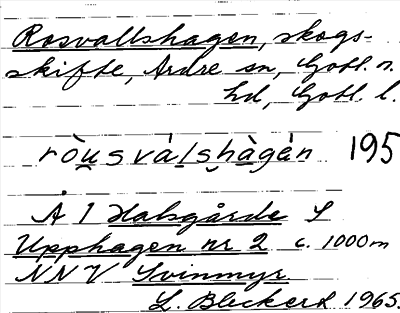 Rosvallshagen, skogs-
skifte, Ardre sn, Gotl. n.
hd, Gotl. l.
ròusvàlshàgèn 195
Å 1 Halsgårde S
Upphagen nr 2 c. 1000 m
NNV Svinmyr
L. Bleckerd 1965.